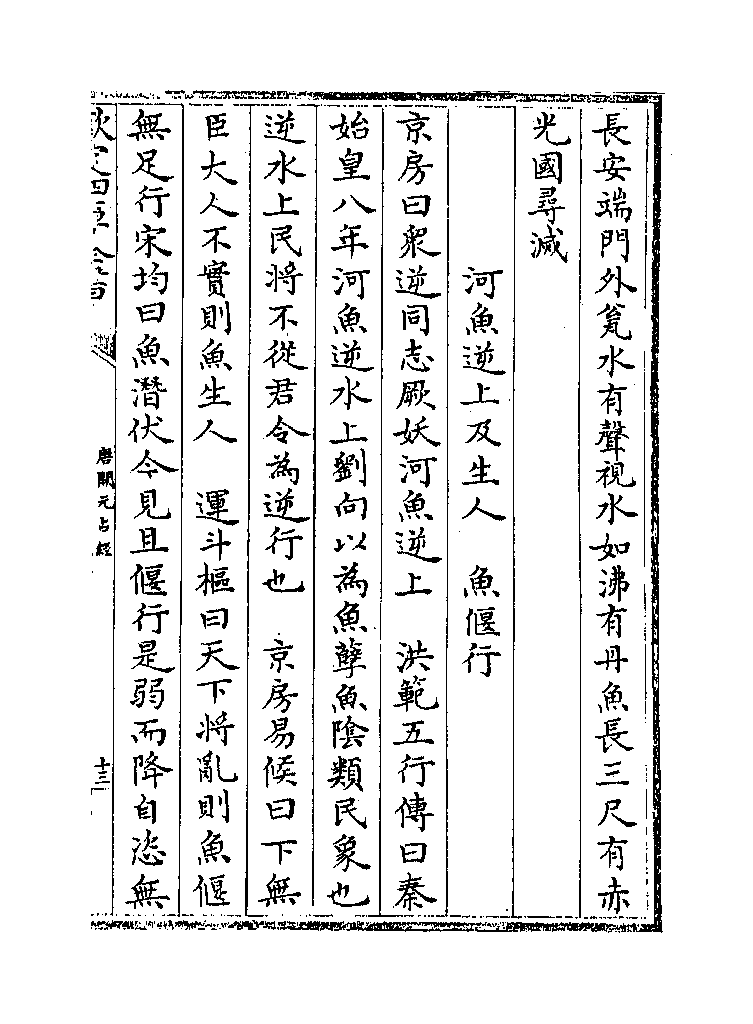 長安端門外瓮水有聲視水如沸有丹魚長三尺有赤
光國尋滅
河魚逆上及生人　魚偃行
京房曰衆逆同志厥妖河魚逆上　洪範五行傳曰秦
始皇八年河魚逆水上劉向以為魚孽魚陰類民象也
逆水上民將不從君令為逆行也　京房易候曰下無
臣大人不實則魚生人　運斗樞曰天下將亂則魚偃
無足行宋均曰魚潛伏今見且偃行是弱而降自恣無
欽定四庫全書
唐開元占經
十三